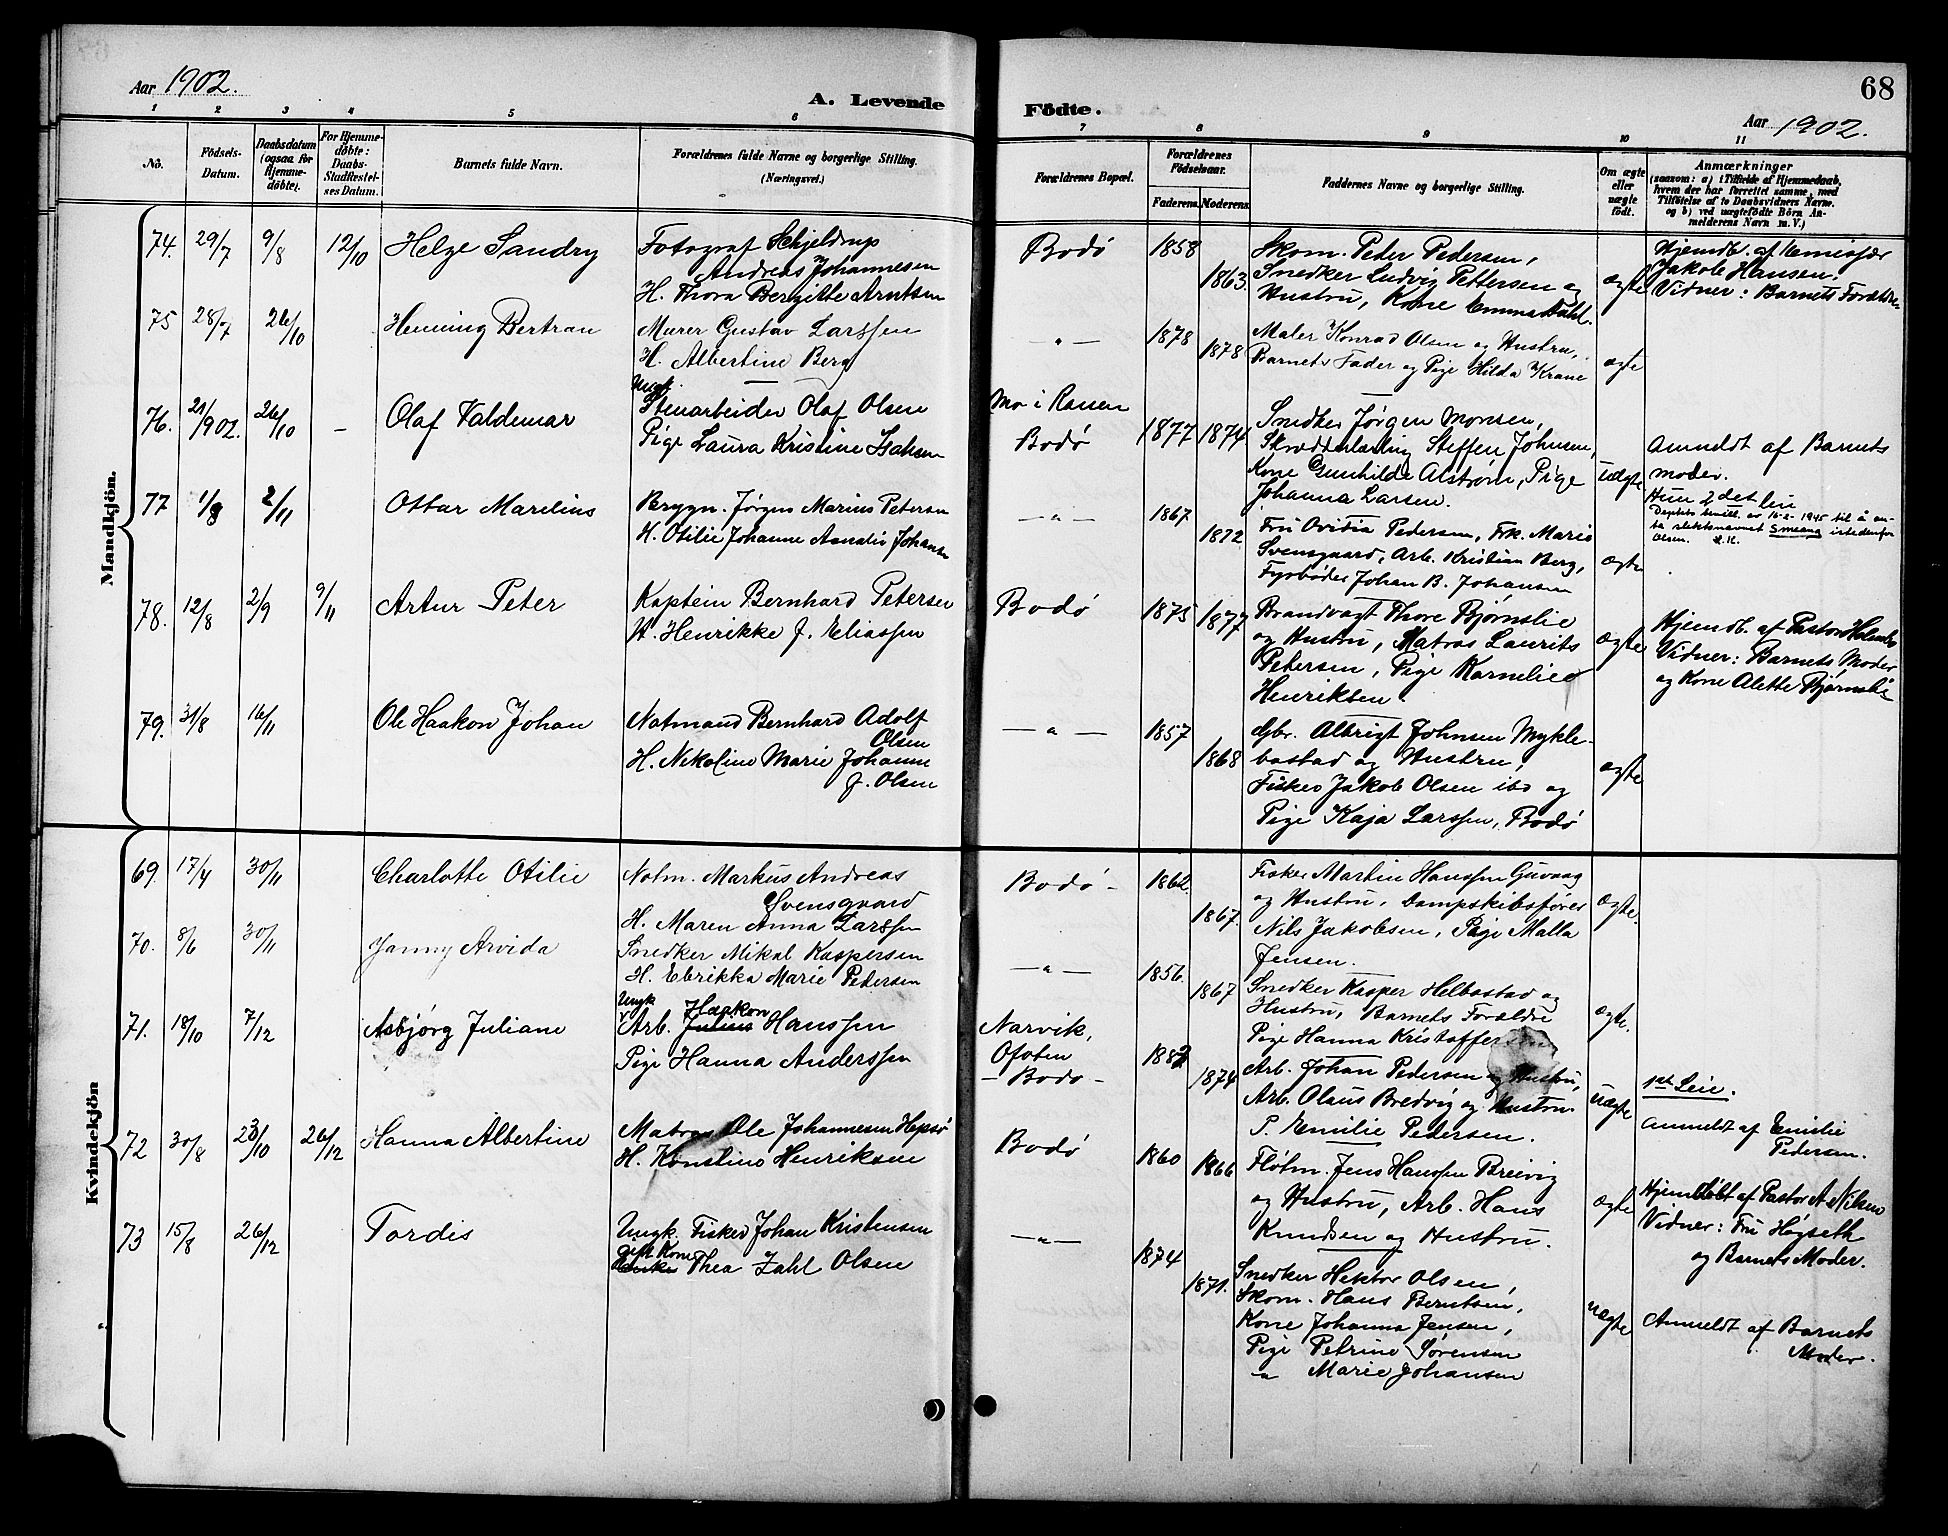 Aar 1902.
A. Levende
Födte.
68
Aar 1902.
1 2 3 4 5 6 7 8 9 10 11
No.
Födsels-Datum.
Daabsdatum (ogsaa for Hjemme-döbte).
For Hjemme-döbte: Daabs-Stadfæstel-ses Datum.
Barnets fulde Navn.
Forældrenes fulde Navne og borgerlige Stilling. (Næringsvei.)
Forældrenes Bopæl.
Forældrenes Födselsaar.
Faderens. Moderens.
Faddernes Navne og borgerlige Stilling.
Om ægte eller uægte födt.
Anmærkninger
(saasom: a) i Tilfælde af Hjemmedaab,
hvem der har forrettet samme, med
Tilföielse af to Daabsvidners Navne,
og b) ved uægtefödte Börn An-
melderens Navn m. V.)
Mandkjön.
74. 29/7 9/8 12/10 Helge Sandry
Fotograf Schjeldrup
Andreas Johannesen
H. Thora Bergitte Arntsen
Bodø 1858 1863
Skom. Peter Pedersen,
Snedker Ludvig Pettersen og
Hustru, Kone Emma Dahl.
ægte
Hjemdb. af Emissær
Jakob Hansen.
Vidner: Barnets Forældre
75 28/7 26/10 Henning Bertran
Murer Gustav Larssen
H. Albertine Berg
— " — 1878 1878
Maler Konrad Olsen og Hustru,
Barnets Fader og Pige Hilda Krane
ægte
76. 21/902. 26/10 – Olaf Valdemar
Ungk.
Stenarbeider Olaf Olsen
Pige Laura Kristine Isaksen
Mo i Ranen
Bodø 1877 1874
Snedker Jørgen Monsen,
Skrædderlærling Steffen Johnsen,
Kone Gunhilde Alstrøm, Pige
Johanna Larsen.
uægte
Anmeldt af Barnets
moder.
Hun 2det leie
av 1945 til å an-
ta slektsnavnet Smeang istedenfor
Olsen.
77 1/8 2/11 Ottar Marelius
Brygm. Jørgen Marius Petersen
H. Otilie Johanne Amalie Johansen
— " — 1867 1872
Fru Ovidia Pedersen, Frk. Marie
Svensgaard, Arb. Kristian Berg,
Fyrbøder Johan B. Johansen
ægte
78. 12/8 2/9 9/11 Artur Peter
Kaptein Bernhard Petersen
H. Henrikke J. Eliassen
Bodø 1875 1877
Brandvagt Thore Bjørnslie
og Hustru, Matros Laurits
Petersen, Pige Kornelie
Henriksen.
ægte
Hjemdb. af Pastor
Vidner: Barnets Moder
og Kone Alette Bjørnslie
79. 31/8 16/11 Ole Haakon Johan
Notmand Bernhard Adolf
Olsen
H. Nekoline Marie Johanne
J. Olsen
— " — 1857 1868
Gbr. Albrigt Johnsen Mykle-
bostad og Hustru,
Fisker Jakob Olsen ibd og
Pige Kaja Larssen, Bodø
ægte
Kvindekjön
69. 17/4 30/11 Charlotte Otilie
Notm. Markus Andreas
Svensgaard
H. Maren Anna Larssen
Bodø - 1862. 1867.
Fisker Martin Hanssen Guvaag
og Hustru, Dampskibsfører
Nils Jakobsen, Pige Malla
Jensen.
ægte
70. 8/6 30/11 Janny Arvida
Snedker Mikal Kaspersen
H. Ebrikka Marie Pedersen
— " — 1856. 1867
Snedker Kasper Helbostad og
Hustru, Barnets Forældre
Pige Hanna
ægte.
71. 18/10 7/12 Asbjørg Juliane
Ungk Haakon
Arb. Julius Hanssen
Pige Hanna Anderssen
Narvik,
Ofoten
- Bodø - 1882 1874
Arb. Johan Pedersen og Hustru,
Arb. Olaus Bredvig og Hustru.
P. Emilie Pedersen.
uægte
1ste Leie.
Anmeldt af Emilie
Pedersen.
72 30/8 23/10 26/12 Hanna Albertine
Matros Ole Johannesen Hepsø
H. Konstine Henriksen
Bodø 1860 1866
Fløtm. Jens Hanssen Breivig
og Hustru, Arb. Hans
Knudsen og Hustru.
ægte
Hjemdøbt af Pastor A. Nilsen
Vidner: Fru Høgseth
og Barnets Moder.
73 15/8 26/12 Tordis
Ungk. Fisker Johan Kristensen
gift Kone
Thea Zahl Olsen
— " — 1874 1871.
Snedker Hektor Olsen,
Skom. Hans Berntsen,
Kone Johanna Jensen,
Pige Petrine Sørensen
" Marie Johansen
uægte
Anmeldt af Barnets
Moder.